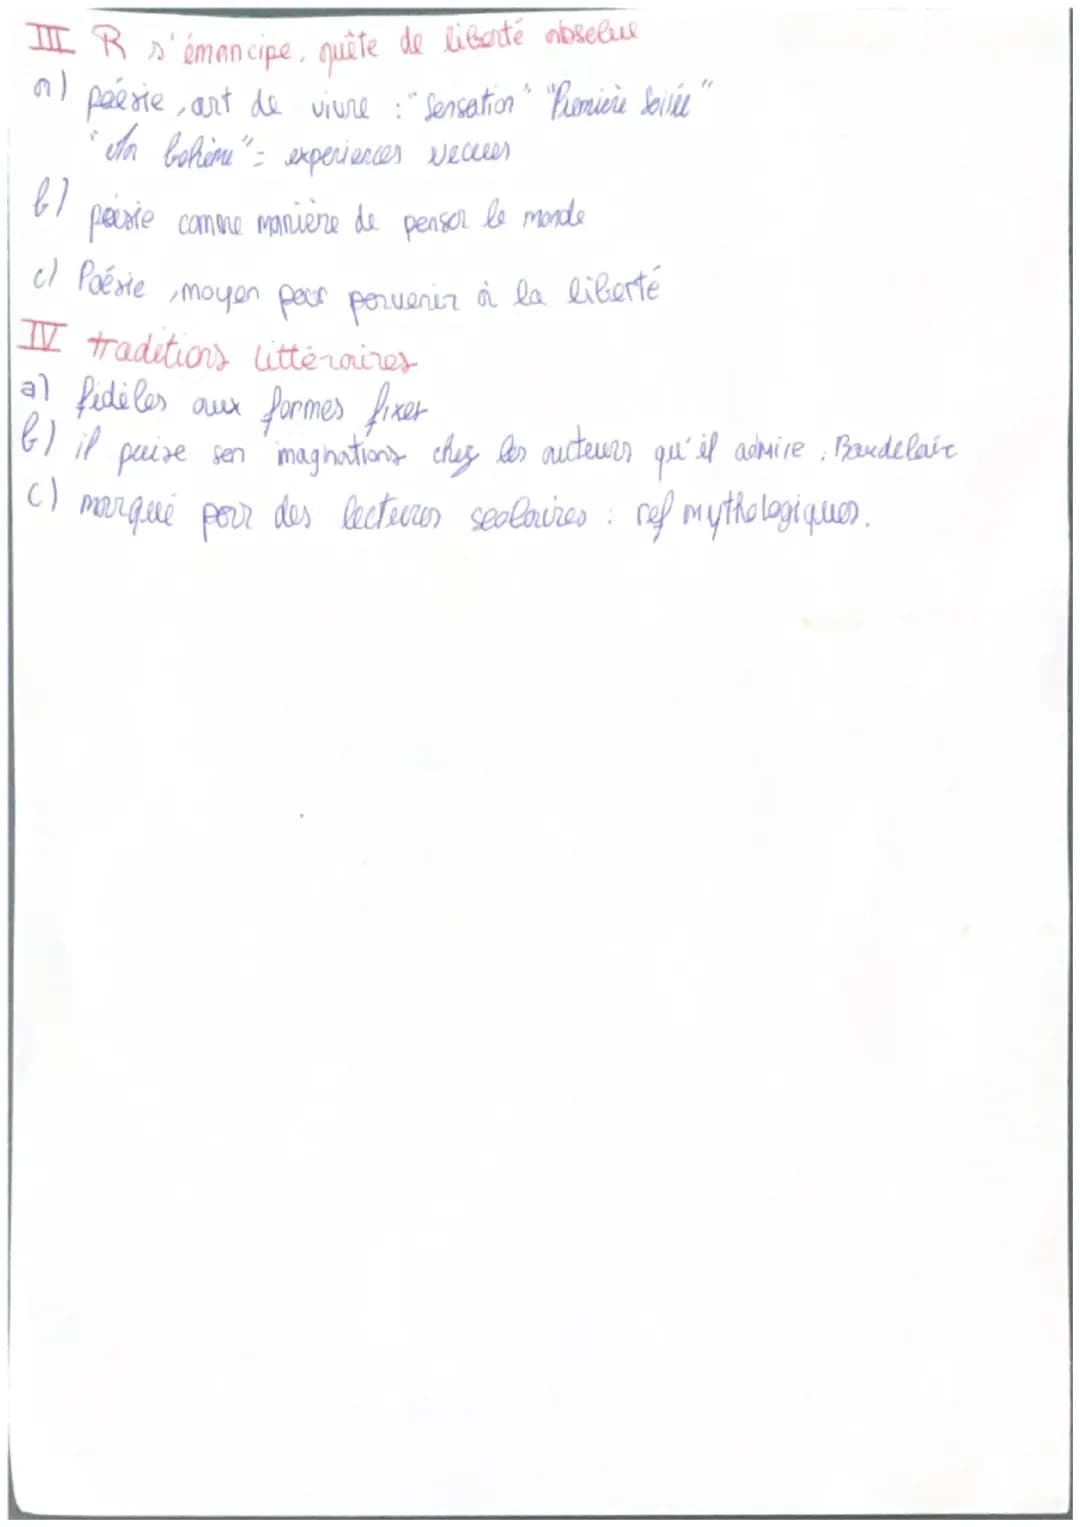 III R s'émancipe, quête de liberté absolue
a) poésie, art de vivre : "Sensation" "Première Soirée"
"Ma bohème" = experiences vecues
b) poésie comme manière de penser le monde
c) Poésie, moyen pour parvenir à la liberté
IV traditions littéraires
a) fidèles aux formes fixes
b) il puise son imaginations chez les auteurs qu'il admire : Baudelaire
c) marqué par des lectures scolaires : ref mythologiques.